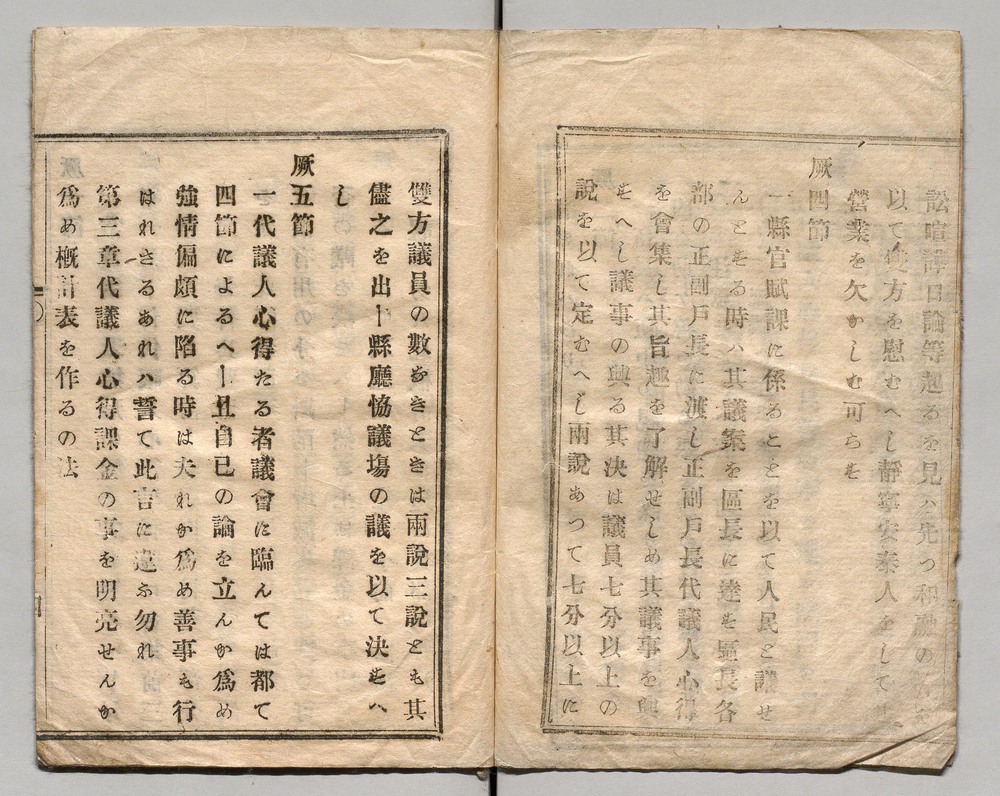 訟喧譁口論等起るを見ハ先つ和融の
以て雙方を慰むへし靜寧安泰人をして其
營業を欠かしむ可らも
厥四節
一縣官賦課に係るとを以て人民と議せ
んとする時ハ其議案を區長に達し區長各
部の正副戸長に渡し正副戸長代議人心得
を會集し其旨趣を了解せしめ其議事を興
すへし議事の興る其決は議員七分以上の
說を以て定むへし兩說あつて七分以上に
雙方議員の數なきときは兩說三說とも其
儘之を出し縣廳恊議塲の議を以て決すへ
し
厥五節
一代議人心得たる者議會に臨んては都て
四節によるへし且自己の論を立んか爲め
強情偏頗に陷る時は夫れか爲め善事も行
はれさるあれハ誓て此言に違ふ勿れ
第三章代議人心得課金の事を明亮せんか
爲め概計表を作るの法